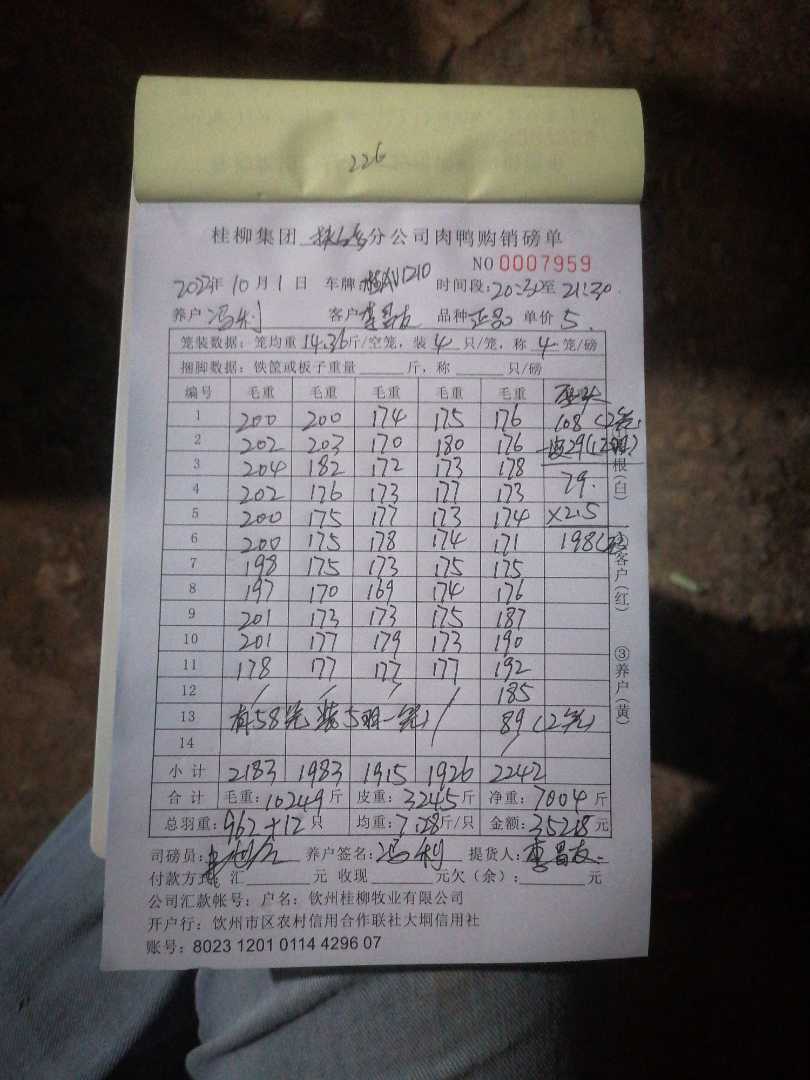 226
桂柳集团 分公司肉鸭购销磅单
NO 0007959
2022年10月1日 车牌: 1210 时间段:20:30至21:30
养户 冯利 客户 李昌友 品种 正品 单价 5
笼装数据:笼均重 14.36斤/空笼,装 4 只/笼,称 4 笼/磅
捆脚数据:铁筐或板子重量 斤,称 只/磅
编号 毛重 毛重 毛重 毛重 毛重
1 200 200 174 175 176 108(2笼)
2 202 203 170 180 176 29(12羽)
3 204 182 172 173 178 根(白)
4 202 176 173 177 173 79.
5 200 175 177 173 174 ×2.5
6 200 175 178 174 171 198
7 198 175 173 175 175 客户(红)
8 197 170 169 174 176
9 201 173 173 175 187
10 201 177 179 173 190
11 178 177 177 177 192 ③养户(黄)
12 / / / / 185
13 有58笼装5羽一笼) / 89(2笼)
14 /
小计 2183 1983 1915 1926 2242
合计 毛重:10249斤 皮重:3245斤 净重:7004斤
总羽重:962+12只 均重:7.28斤/只 金额:35218元
司磅员: 养户签名:冯利 提货人:李昌友
付款方式 汇 元 收现 元欠(余): 元
公司汇款帐号:户名:钦州桂柳牧业有限公司
开户行:钦州市区农村信用合作联社大垌信用社
账号:8023 1201 0114 4296 07